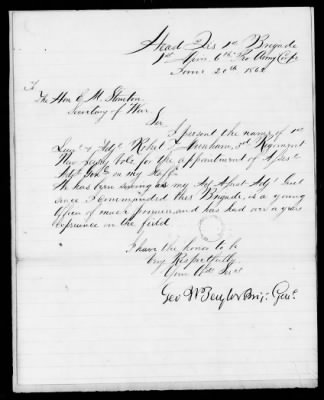 Head Qrs 1st Brigade
1st Divn 6th Pro Army Corps
June 20th 1862
To
The Hon E. M. Stanton
Secretary of War
Sir
I present the name of 1st
Lieut & Adjt Robt T. 3rd Regiment
New Jersey Vols for the appointment of Assist
Adjt Genl on my Staff
He has been serving as my Act Assist Adjt Genl
since I commanded this Brigade, is a young
Officer of much promise and has had over a years
experience in the field
I have the honor to be
Very Respectfully
Your Obt Servt
Geo W Taylor Brig. Genl.